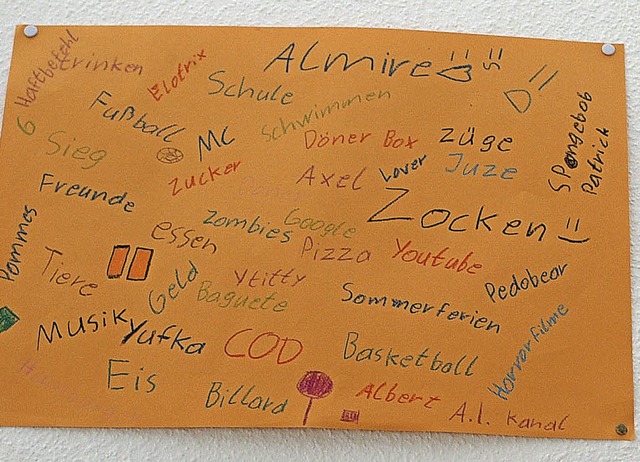 Haftbefehl
trinken
Elotrix
Almire
Schule
Fußball
MC
Schwimmen
Döner Box
Züge
Spongebob
Patrick
6
Sieg
Zucker
Axel
Lover
Juze
Freunde
Zombies
Google
Zocken =)
Pommes
essen
Pizza
Youtube
Tiere
Geld
Ytitty
Baguete
Sommerferien
Pedobear
Musik
Yufka
COD
Basketball
Horrorfilme
Eis
Billard
Albert
A.l. Kanal